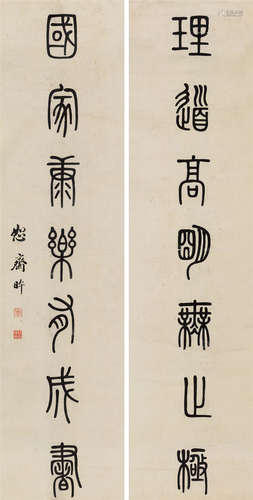 理道高明無止極
國家康樂有成書
恕齋